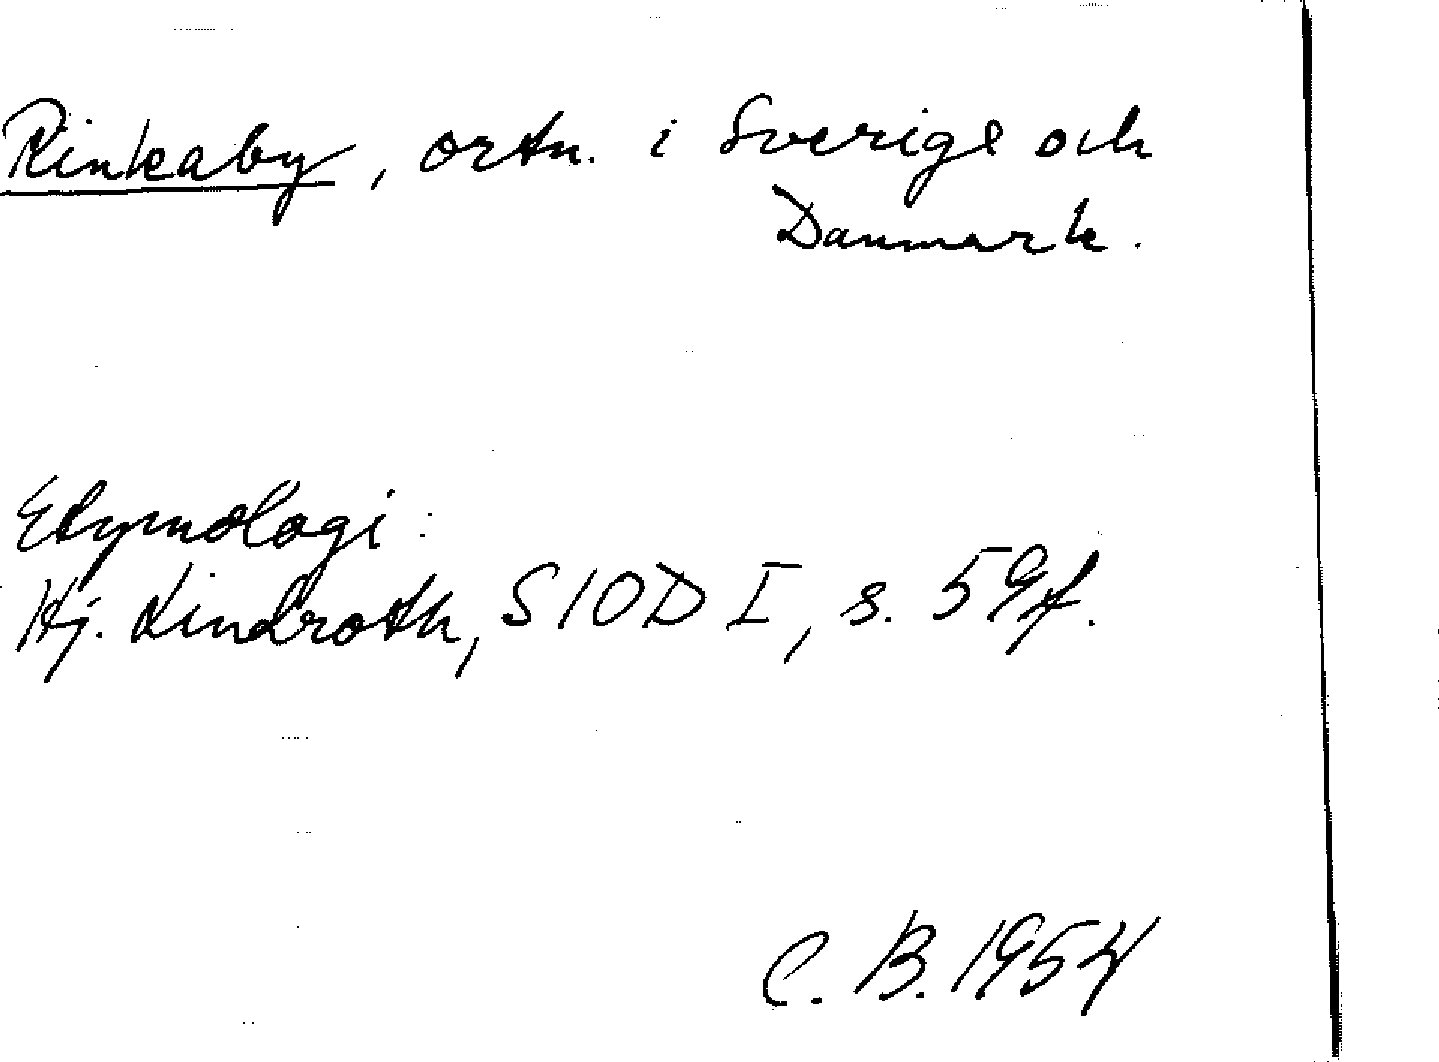 Rinkaby, ortn. i Sverige och
Danmark.
Etymologi:
Hj. Lindroth, SIOD I, s. 59f.
C. B. 1954